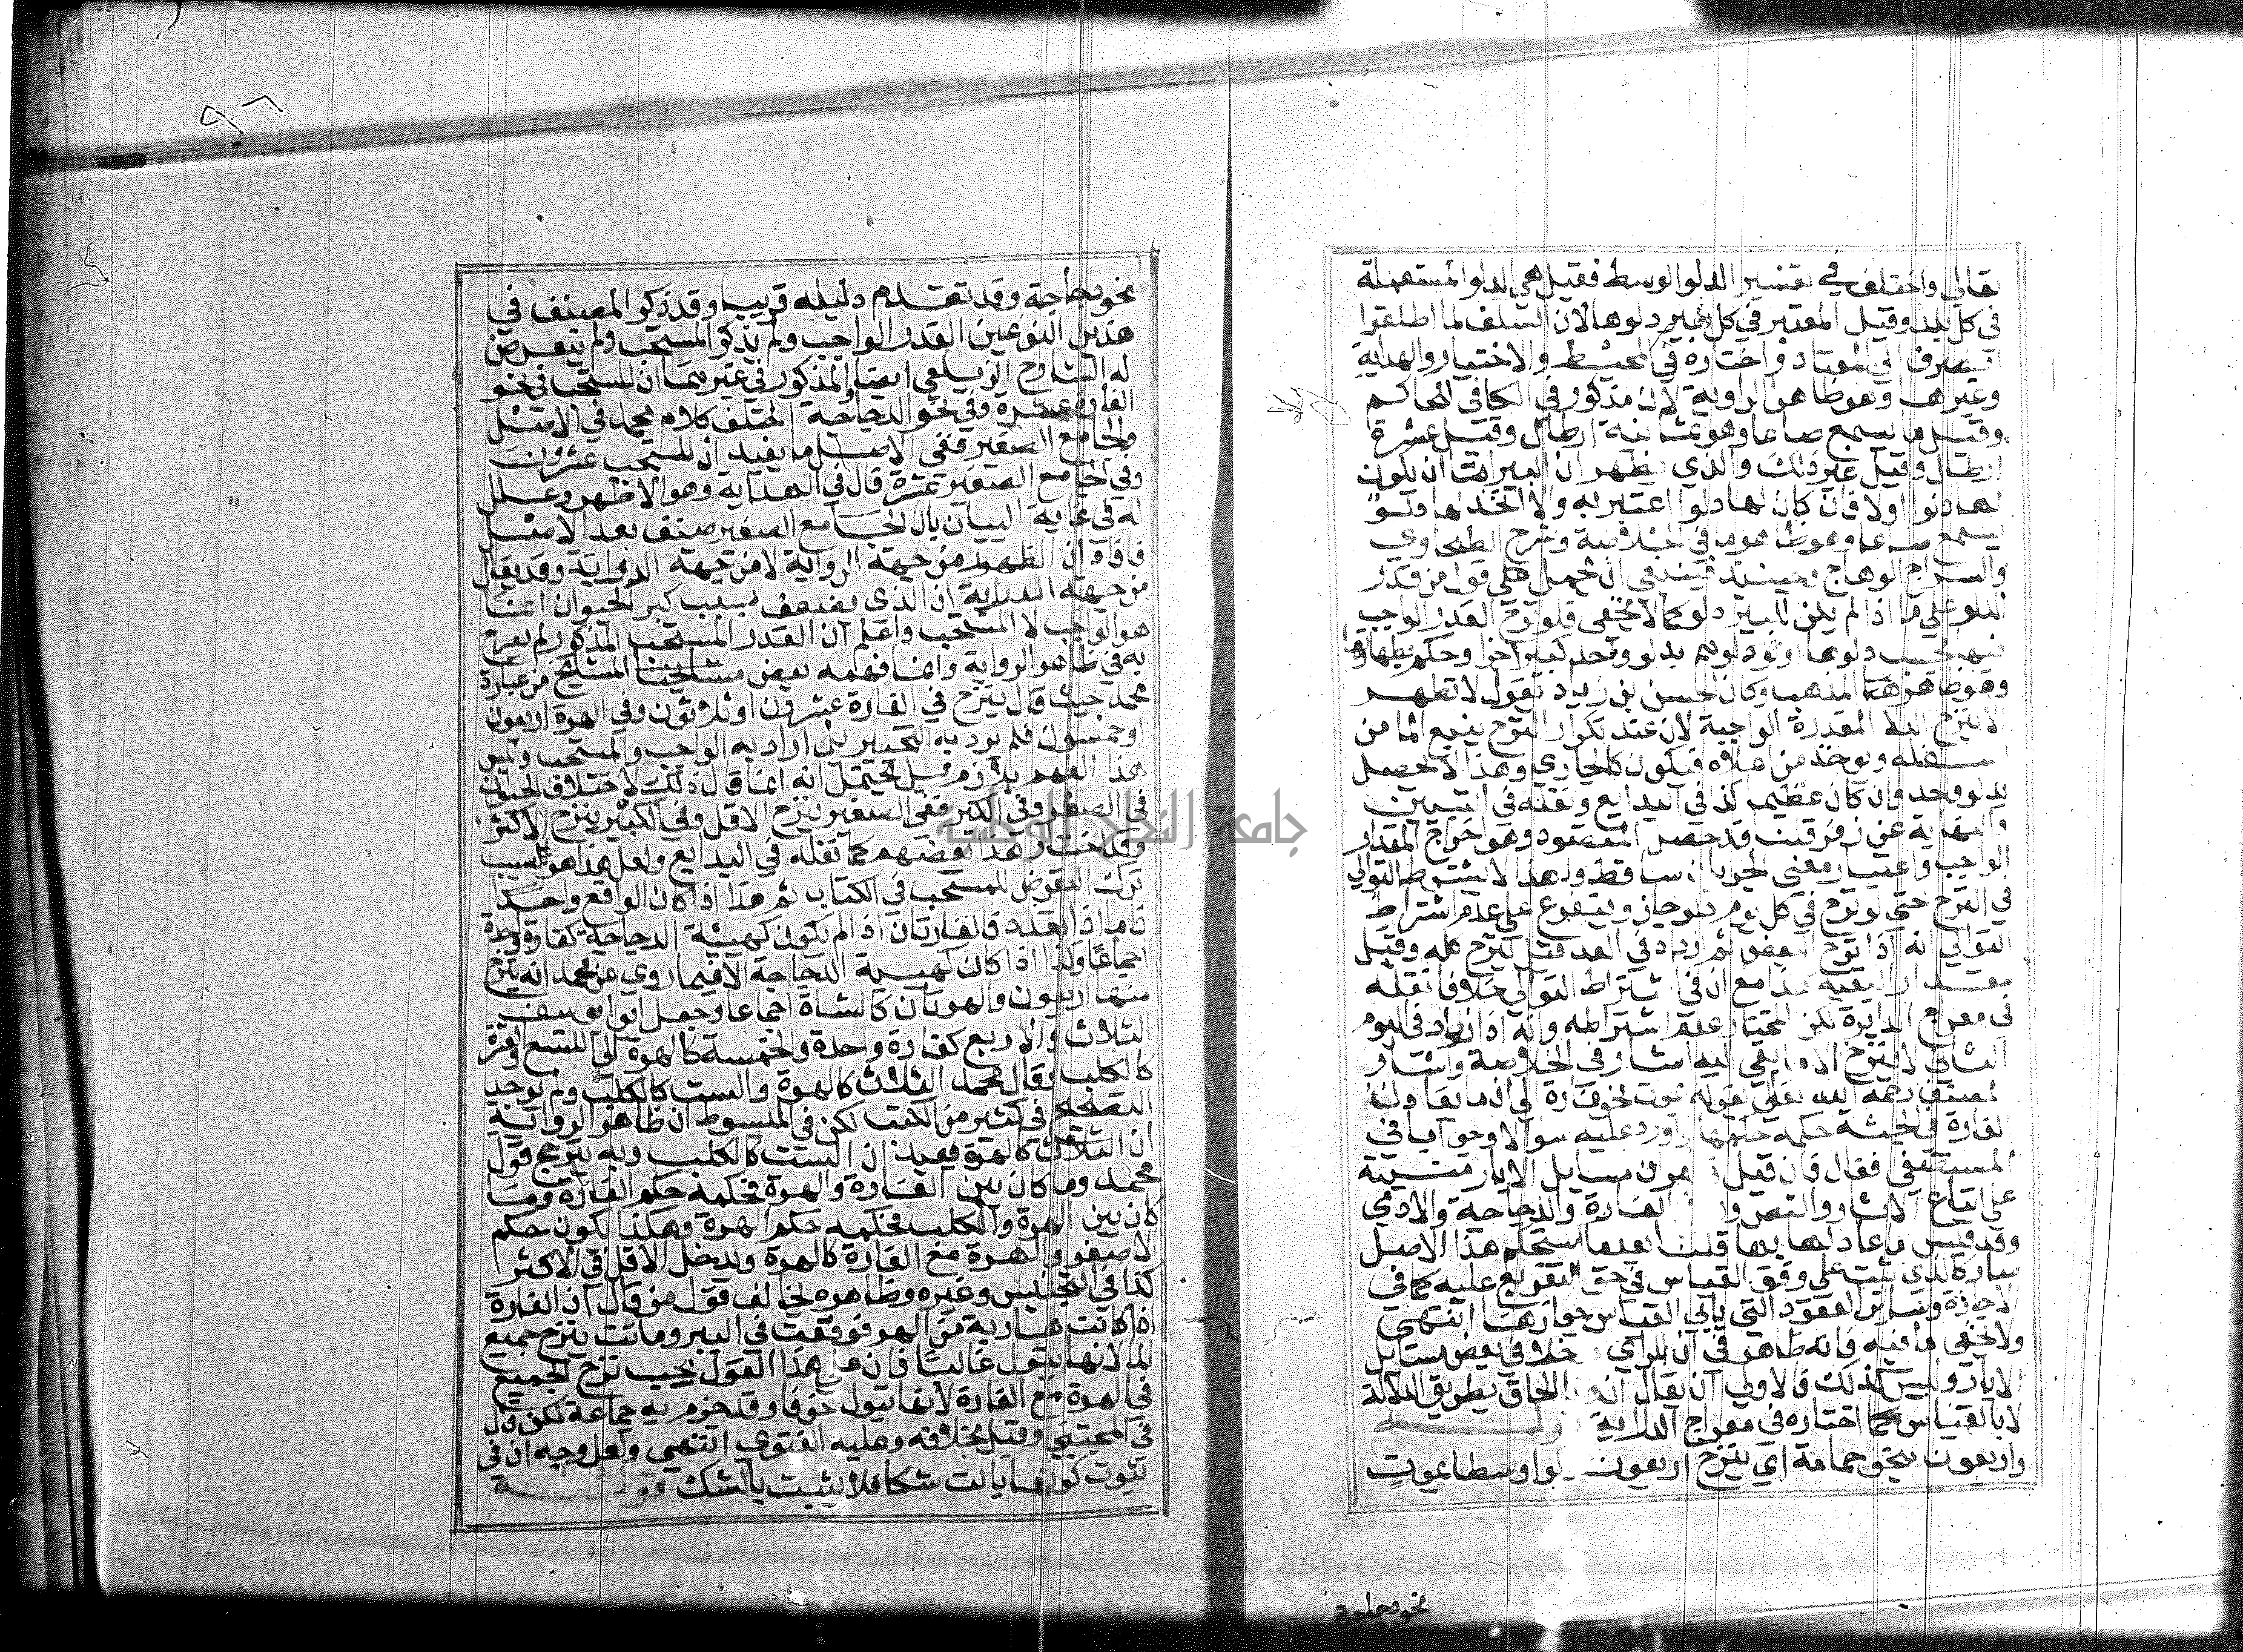 تعالي واختلف في تفسير الدلو الوسط فقيل هي الدلو المستعملة
في كل بلد وقيل المعتبر في كل بير دلوها لان السلف لما اطلقوا
انصرف الي المعتاد واختاره في المحيط والاختيار والهداية
وغيرها وهو ظاهر الرواية لانه مذكور في الكافي للحاكم
وقيل ما يسع صاعا وهو ثمانية ارطال وقيل عشرة
ارطال وقيل غير ذلك والذي يظهر ان البير اما ان يكون
لها دلوا اولا فان كان لها دلوا اعتبر به والا اتخذ لها دلو
يسع صاعا وهو ظاهر ما في الخلاصة وشرح الطحاوي
والسراج الوهاج وحينئذ فينبغي ان يحمل علي قول من قدر
الدلو علي ما اذا لم يكن للبير دلو كما لا يخفي فلو نزح القدر الواجب
منها بحسب دلوها او دلوهم بدلو واحد كبير اجزا وحكم بطهارتها
وهو ظاهر المذهب وكان الحسن بن زياد يقول لا تطهر
الا بنزح الدلا المقدرة الواجبة لان عند تكرار النزح ينبع الما من
اسفله ويوخذ من اعلاه فيكون كالجاري وهذا لا يحصل
بدلو واحد وان كان عظيما كذا في البدايع ونقله في التبيين
والنهاية عن زفر قلت قد حصل المقصود وهو اخراج المقدار
الواجب واعتبار معني الجريان ساقط ولهذا لا يشترط التوالي
في النزح حتي لو نزح في كل يوم دلو جاز ويتفرع علي عدم اشتراط
التوالي انه اذا نزح البعض ثم زاد في الغد قيل ينزح كله وقيل
مقدار البقية هذا مع ان في اشتراط التوالي خلافا نقله
في معراج الدراية لكن المختار عدم اشتراطه وانه اذا زاد في اليوم
الثاني لا ينزح الا ما بقي اليه اشار في الخلاصة واشار
المصنف رحمه الله تعالي بقوله بموت نحو فارة الي ان ما يعادل
الفارة في الجثة حكمه حكمها واورد عليه سوالا وجوابا في
المستصفي فقال فان قيل مسايل الابار مبنية
علي اتباع الاثار والنص ورد الفارة والدجاجة والادمي
وقد قيس ما عادلها بها قلنا بعدما استحكم هذا الاصل
صار كالذي ثبت علي وفق القياس في حق التفريع عليه كما في
الاجارة وساير العقود التي يابي القياس جوازها انتهي
ولا يخفي ما فيه فانه ظاهر في ان للراي مدخلا في بعض مسايل
الابار وليس كذلك فالاولي ان يقال انه الحاق بطريق الدلالة
لا بالقياس كما اختاره في معراج الدراية قوله
واربعون بنحو حمامة اي ينزح اربعون دلوا وسطا بموت
نحو دجاجة
نحو دجاجة وقد تقدم دليله قريبا وقد ذكر المصنف في
هذين النوعين القدر الواجب ولم يذكر المستحب ولم يتعرض
له الشارح الزيلعي ايضا والمذكور في غيرهما ان المستحب في نحو
الفارة عشرة وفي نحو الدجاجة اختلف كلام محمد في الاصل
والجامع الصغير ففي الاصل ما يفيد ان المستحب عشرون
وفي الجامع الصغير عشرة قال في الهداية وهو الاظهر وعلل
له في غاية البيان بان الجامع الصغير صنف بعد الاصل
فافاد ان الظهور من جهة الرواية لا من جهة الدراية وقد يقال
من جهة الدراية ان الذي يضعف بسبب كبر الحيوان انما
هو الواجب لا المستحب واعلم ان القدر المستحب المذكور لم يصرح
به في ظاهر الرواية وانما فهمه بعض مشايخنا المشايخ من عبارة
محمد حيث قال ينزح في الفارة عشرون او ثلاثون وفي الهرة اربعون
او خمسون فلم يرد به التخيير بل اراد به الواجب والمستحب وليس
هذا الفهم بلازم بل يحتمل انه انما قال ذلك لاختلاف الحيوان
في الصغر وفي الكبر ففي الصغير ينزح الاقل وفي الكبير ينزح الاكثر
وقد اختار هذا بعضهم كما نقله في البدايع ولعل هذا هو السبب
ترك التعرض للمستحب في الكتاب ثم هذا اذا كان الواقع واحدا
فاما اذا تعدد فالفارتان اذا لم يكونا كهيئة الدجاجة كفارة واحدة
اجماعا وكذا اذا كان كهيئة الدجاجة الا فيما روي عن محمد انه ينزح
منها اربعون والهرتان كالشاة اجماعا وجعل ابو يوسف
الثلاث والاربع كفارة واحدة والخمسة كالهرة الي التسع والعشرة
كالكلب وقال محمد الثلاث كالهرة والست كالكلب ولم يوجد
التصحيح في كثير من الكتب لكن في المبسوط ان ظاهر الرواية
ان الثلاث كالهرة فيفيد ان الست كالكلب وبه يترجح قول
محمد وما كان بين الفارة والهرة فحكمه حكم الفارة وما
كان بين الهرة والكلب فحكمه حكم الهرة وهكذا يكون حكم
الاصغر والهرة مع الفارة كالهرة ويدخل الاقل في الاكثر
كذا في التجنيس وغيره وظاهره يخالف قول من قال ان الفارة
اذا كانت هاربة من الهر فوقعت في البير وماتت ينزح جميع
الما لانها تبول غالبا فان علي هذا القول يجب نزح الجميع
في الهرة مع الفارة لانها تبول خوفا وقد جزم به جماعة لكن قال
في المجتبي وقيل بخلافه وعليه الفتوي انتهي ولعل وجهه ان في
ثبوت كونها بالت شكا فلا يثبت بالشك قوله